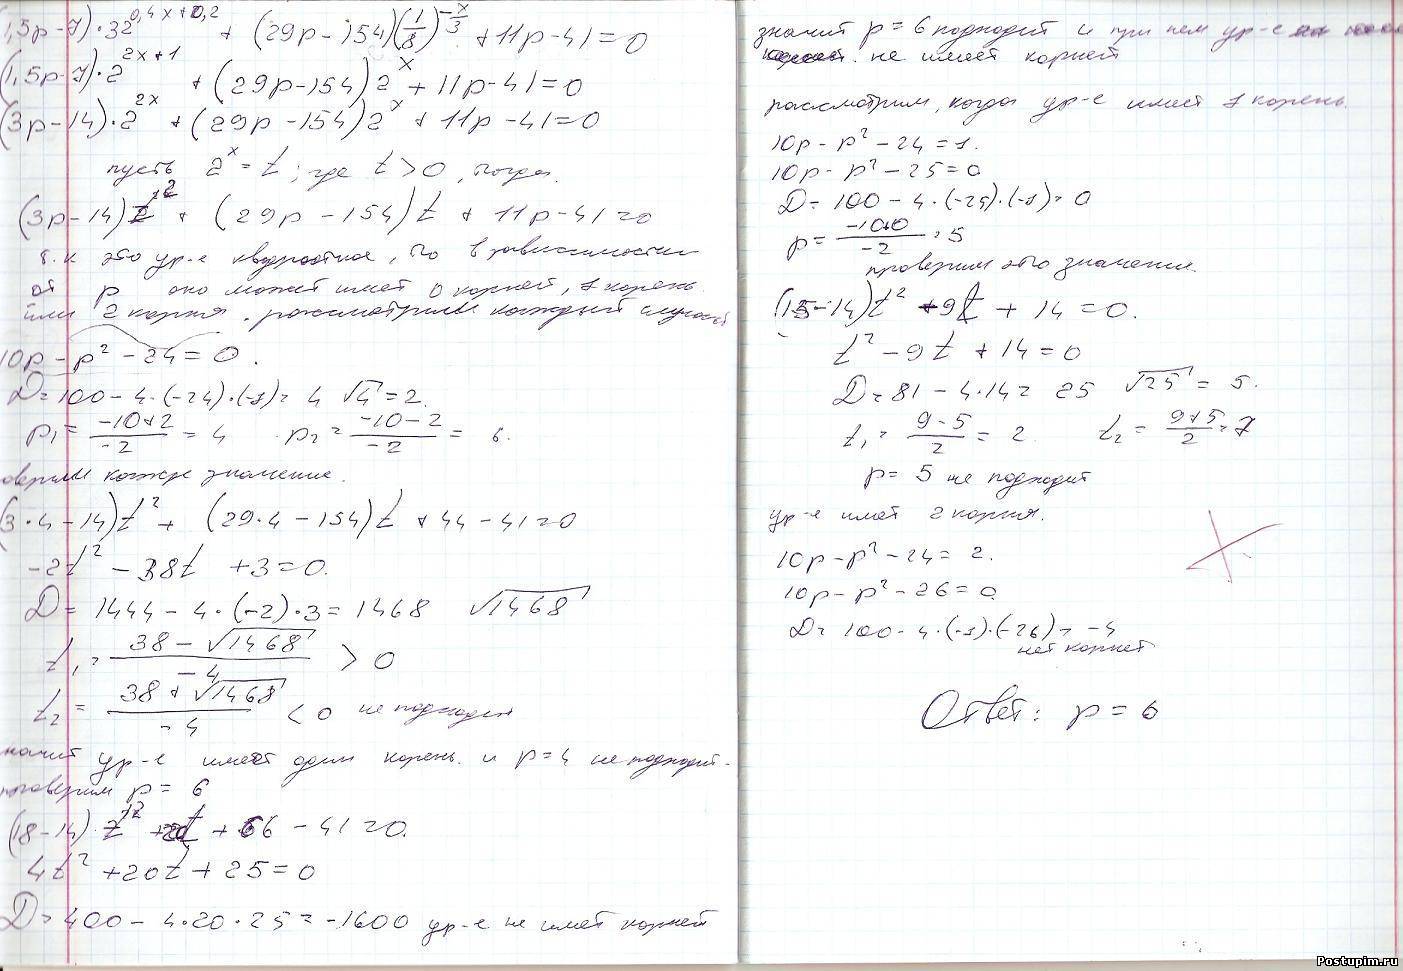 1,5p-7)·32^{0,4x+0,2} + (29p-154)(1/8)^{-x/3} + 11p-41=0
(1,5p-7)·2^{2x+1} + (29p-154)2^x + 11p-41=0
(3p-14)·2^{2x} + (29p-154)2^x + 11p-41=0
пусть 2^x = t; где t>0, тогда
(3p-14)t^2 + (29p-154)t + 11p-41=0
т.к это ур-е квадратное, то в зависимости
от p оно может имет 0 корней, 1 корень
или 2 корня. рассмотрим каждый случай
10p-p^2-24=0.
D=100-4·(-24)·(-1)=4 √4=2.
p1=(-10+2)/-2=4 p2=(-10-2)/-2=6.
оверим кажде значение.
(3·4-14)t^2+ (29·4-154)t + 44-41=0
-2t^2 -38t +3=0.
D=1444-4·(-2)·3=1468 √1468
t1=(38-√1468)/-4 >0
t2=(38+√1468)/-4 <0 не подходит
начит ур-е имеет один корень. и p=4 не подходит.
проверим p=6
(18-14)t^2+20t+66-41=0.
4t^2+20t+25=0
D=400-4·20·25=-1600 ур-е не имет корней
значит p=6 подходит и при нем ур-е
не имеет корней
рассмотрим, когда ур-е имеет 1 корень.
10p-p^2-24=1.
10p-p^2-25=0
D=100-4·(-25)·(-1)=0
p=(-10±0)/-2=5
проверим это значение.
(15-14)t^2 -9t + 14=0.
t^2-9t+14=0
D=81-4·14=25 √25=5.
t1=(9-5)/2=2. t2=(9+5)/2=7
p=5 не подходит
ур-е имет 2 корня.
10p-p^2-24=2.
10p-p^2-26=0
D=100-4·(-1)·(-26)=-4
нет корней
Ответ: p=6
Postupim.ru